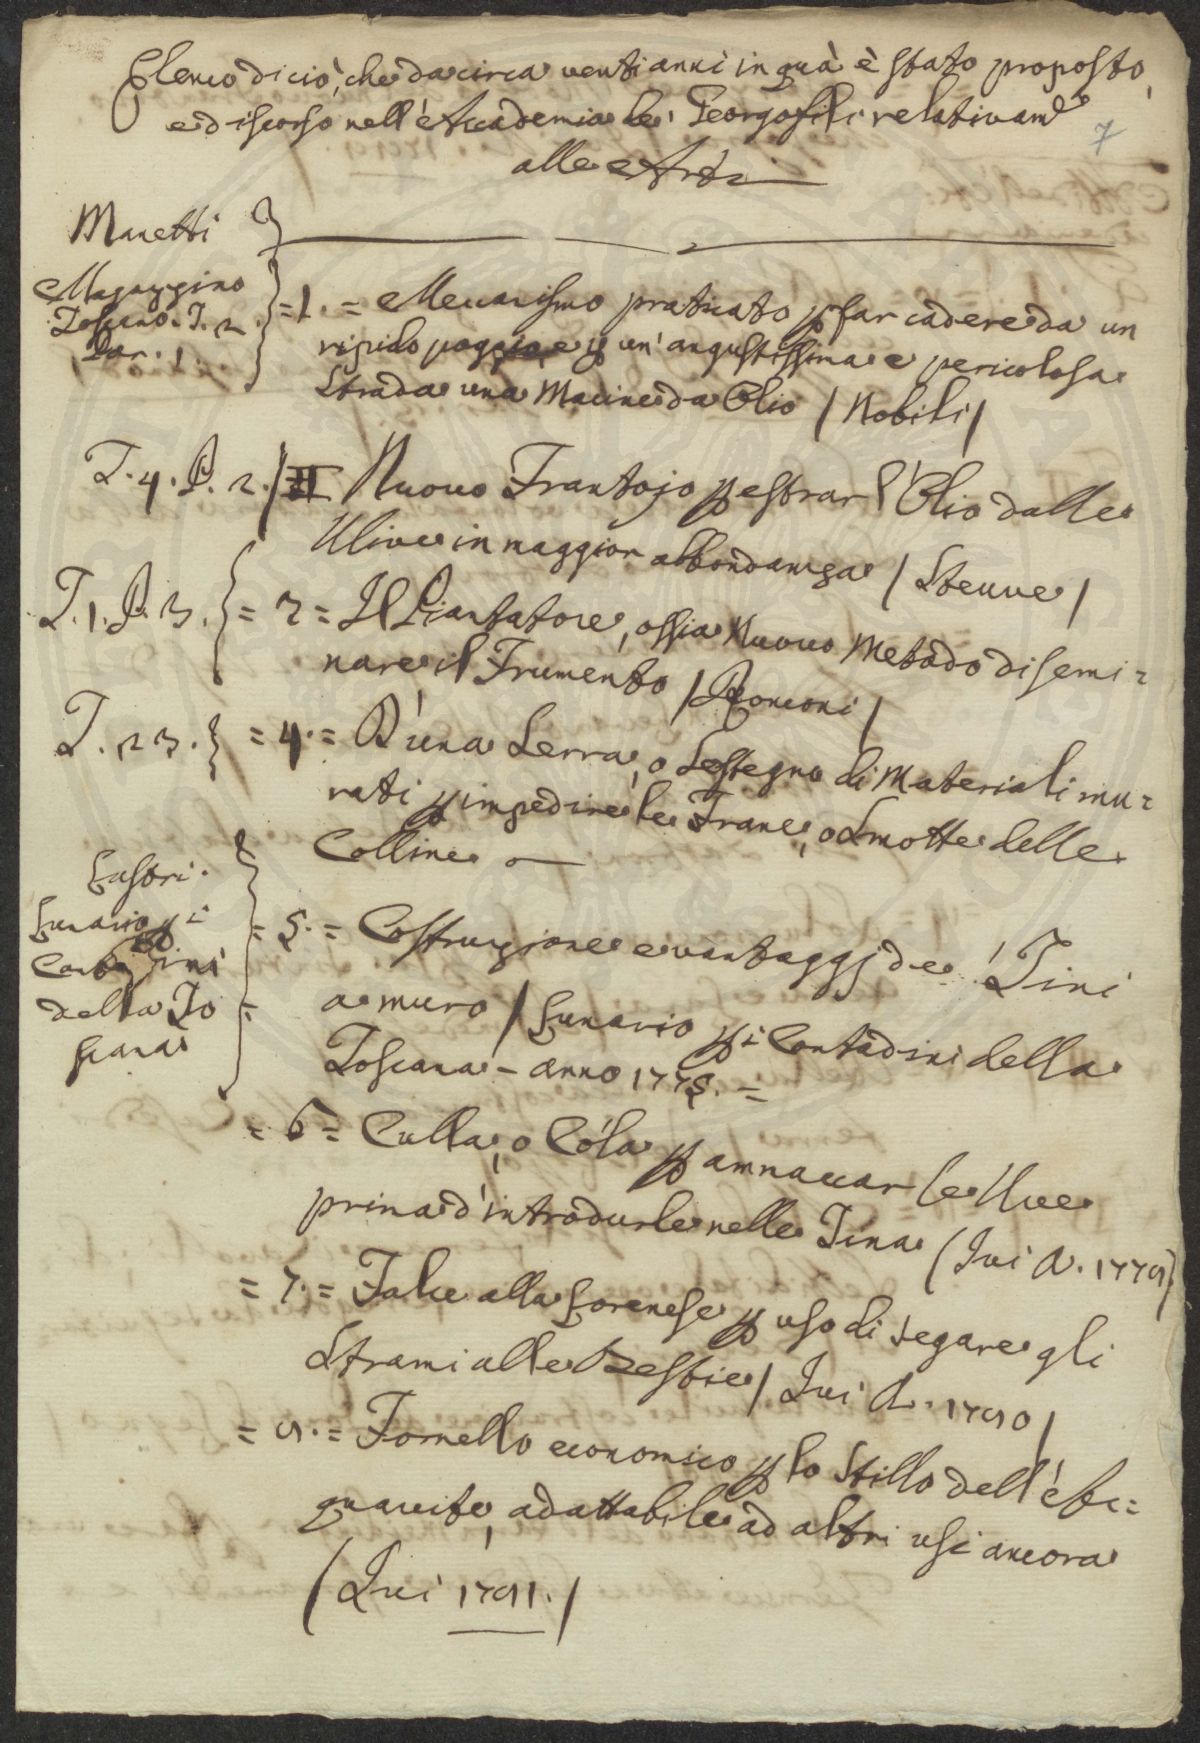 Elenco di ciò, che da circa venti anni in quà è stato proposto,
e discorso nell'Accademia de' Georgofili relativam.e
alle Arti
7
Manetti
Magazzino
Toscano. T. 2.
Par. 1.
= 1. = Meccanismo praticato p far cadere da un
ripido poggio, e p un'angustissima e pericolosa
Strada una Macine da Olio / Nobili /
T. 4. P. 2. / II Nuovo Frantojo p estrar l'Olio dalle
Ulive in maggior abbondanza / Steuve /
T. 1. P. 3. = 3 = Il Piantatore, ossia Nuovo Metodo di semi=
nare il Frumento / Ronconi /
T. 23. = 4. = D'una Serra, o Sostegno di Materiali mu=
rati p impedire le Frane, o Smotte delle
Colline
Lastri.
Lunario p i
Contadini
della To=
scana
= 5. = Costruzione e vantaggj de' Tini
a muro / Lunario p i Contadini della
Toscana - anno 1775. =
= 6 = Culla, o Cóla p ammaccar le Uve
prima d'introdurle nelle Tina (Ivi A. 1779)
= 7. = Falce alla Lorenese p uso di segare gli
Strami alle Bestie / Ivi A. 1780 /
= 8. = Fornello economico p lo Stillo dell'Ac=
quavite, adattabile ad altri usi ancora
/ Ivi 1781. /